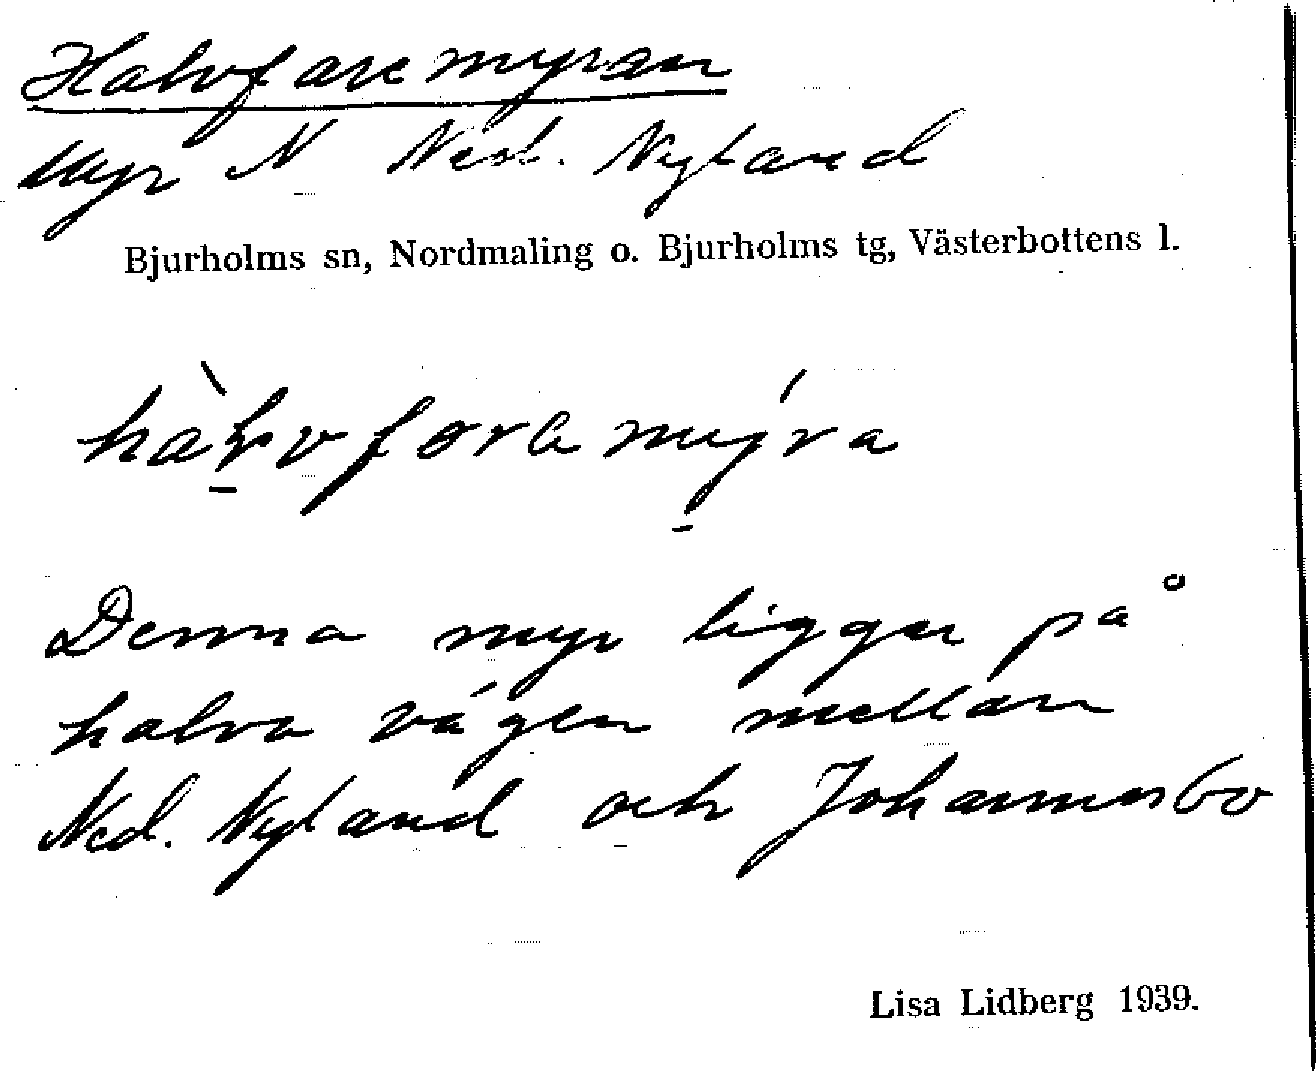 Halvfaremyran
Myr N Ned. Nyland
Bjurholms sn, Nordmaling o. Bjurholms tg, Västerbottens l.
hàḷvforamýra
Denna myr ligger på
halva vägen mellan
Ned. Nyland och Johannesbo
Lisa Lidberg 1939.